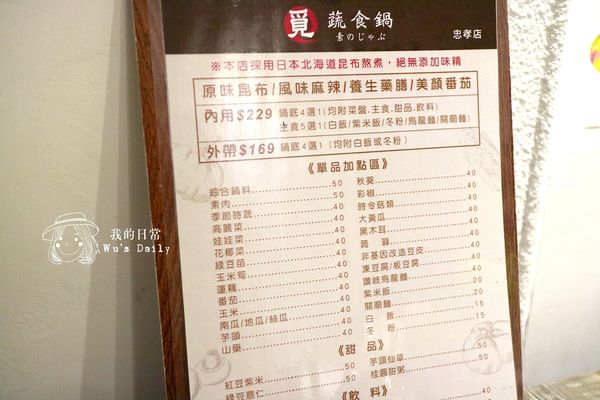 覓 蔬食鍋
素のじゃぶ
忠孝店
※本店採用日本北海道昆布熬煮，絕無添加味精
原味昆布/風味麻辣/養生藥膳/美顏番茄
內用$229 鍋底4選1(均附菜盤.主食.甜品.飲料)
主食5選1(白飯/紫米飯/冬粉/烏龍麵/關廟麵)
外帶$169 鍋底4選1(均附白飯或冬粉)
《單品加點區》
綜合鍋料 50
素肉 50
季節時蔬 40
高麗菜 40
娃娃菜 40
花椰菜 40
綠豆苗 40
玉米筍 40
蓮藕 40
番茄 40
玉米 40
南瓜/地瓜/絲瓜 40
芋頭 40
山藥 40
秋葵 40
彩椒 40
時令菇類 40
大黃瓜 40
黑木耳 40
蒟蒻 40
非基因改造豆皮 40
凍豆腐/板豆腐 40
讚岐烏龍麵 40
紫米飯 20
關廟麵 20
白飯 15
冬粉 15
《甜品》
紅豆紫米 50
綠豆薏仁 50
芋頭仙草 50
桂圓甜粥 50
《飲料》
我的日常
Wu's Daily